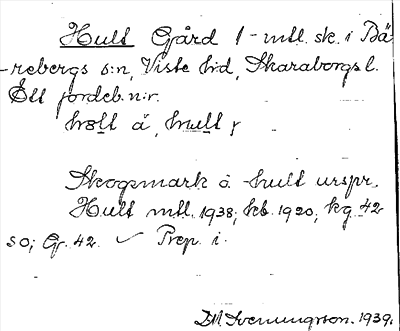 Hult Gård 1 - mtl. sk. i Bä
-rebergs s:n, Viste hd, Skaraborgs l.
Ett jordeb.n:r.
hɷlt å, hult y
Skogsmark å hult urspr.
Hult mtl. 1938; kb. 1920; kg. 42
SO; Gr. 42. ✓ Prep. i.
D.M. Svenungsson. 1939.